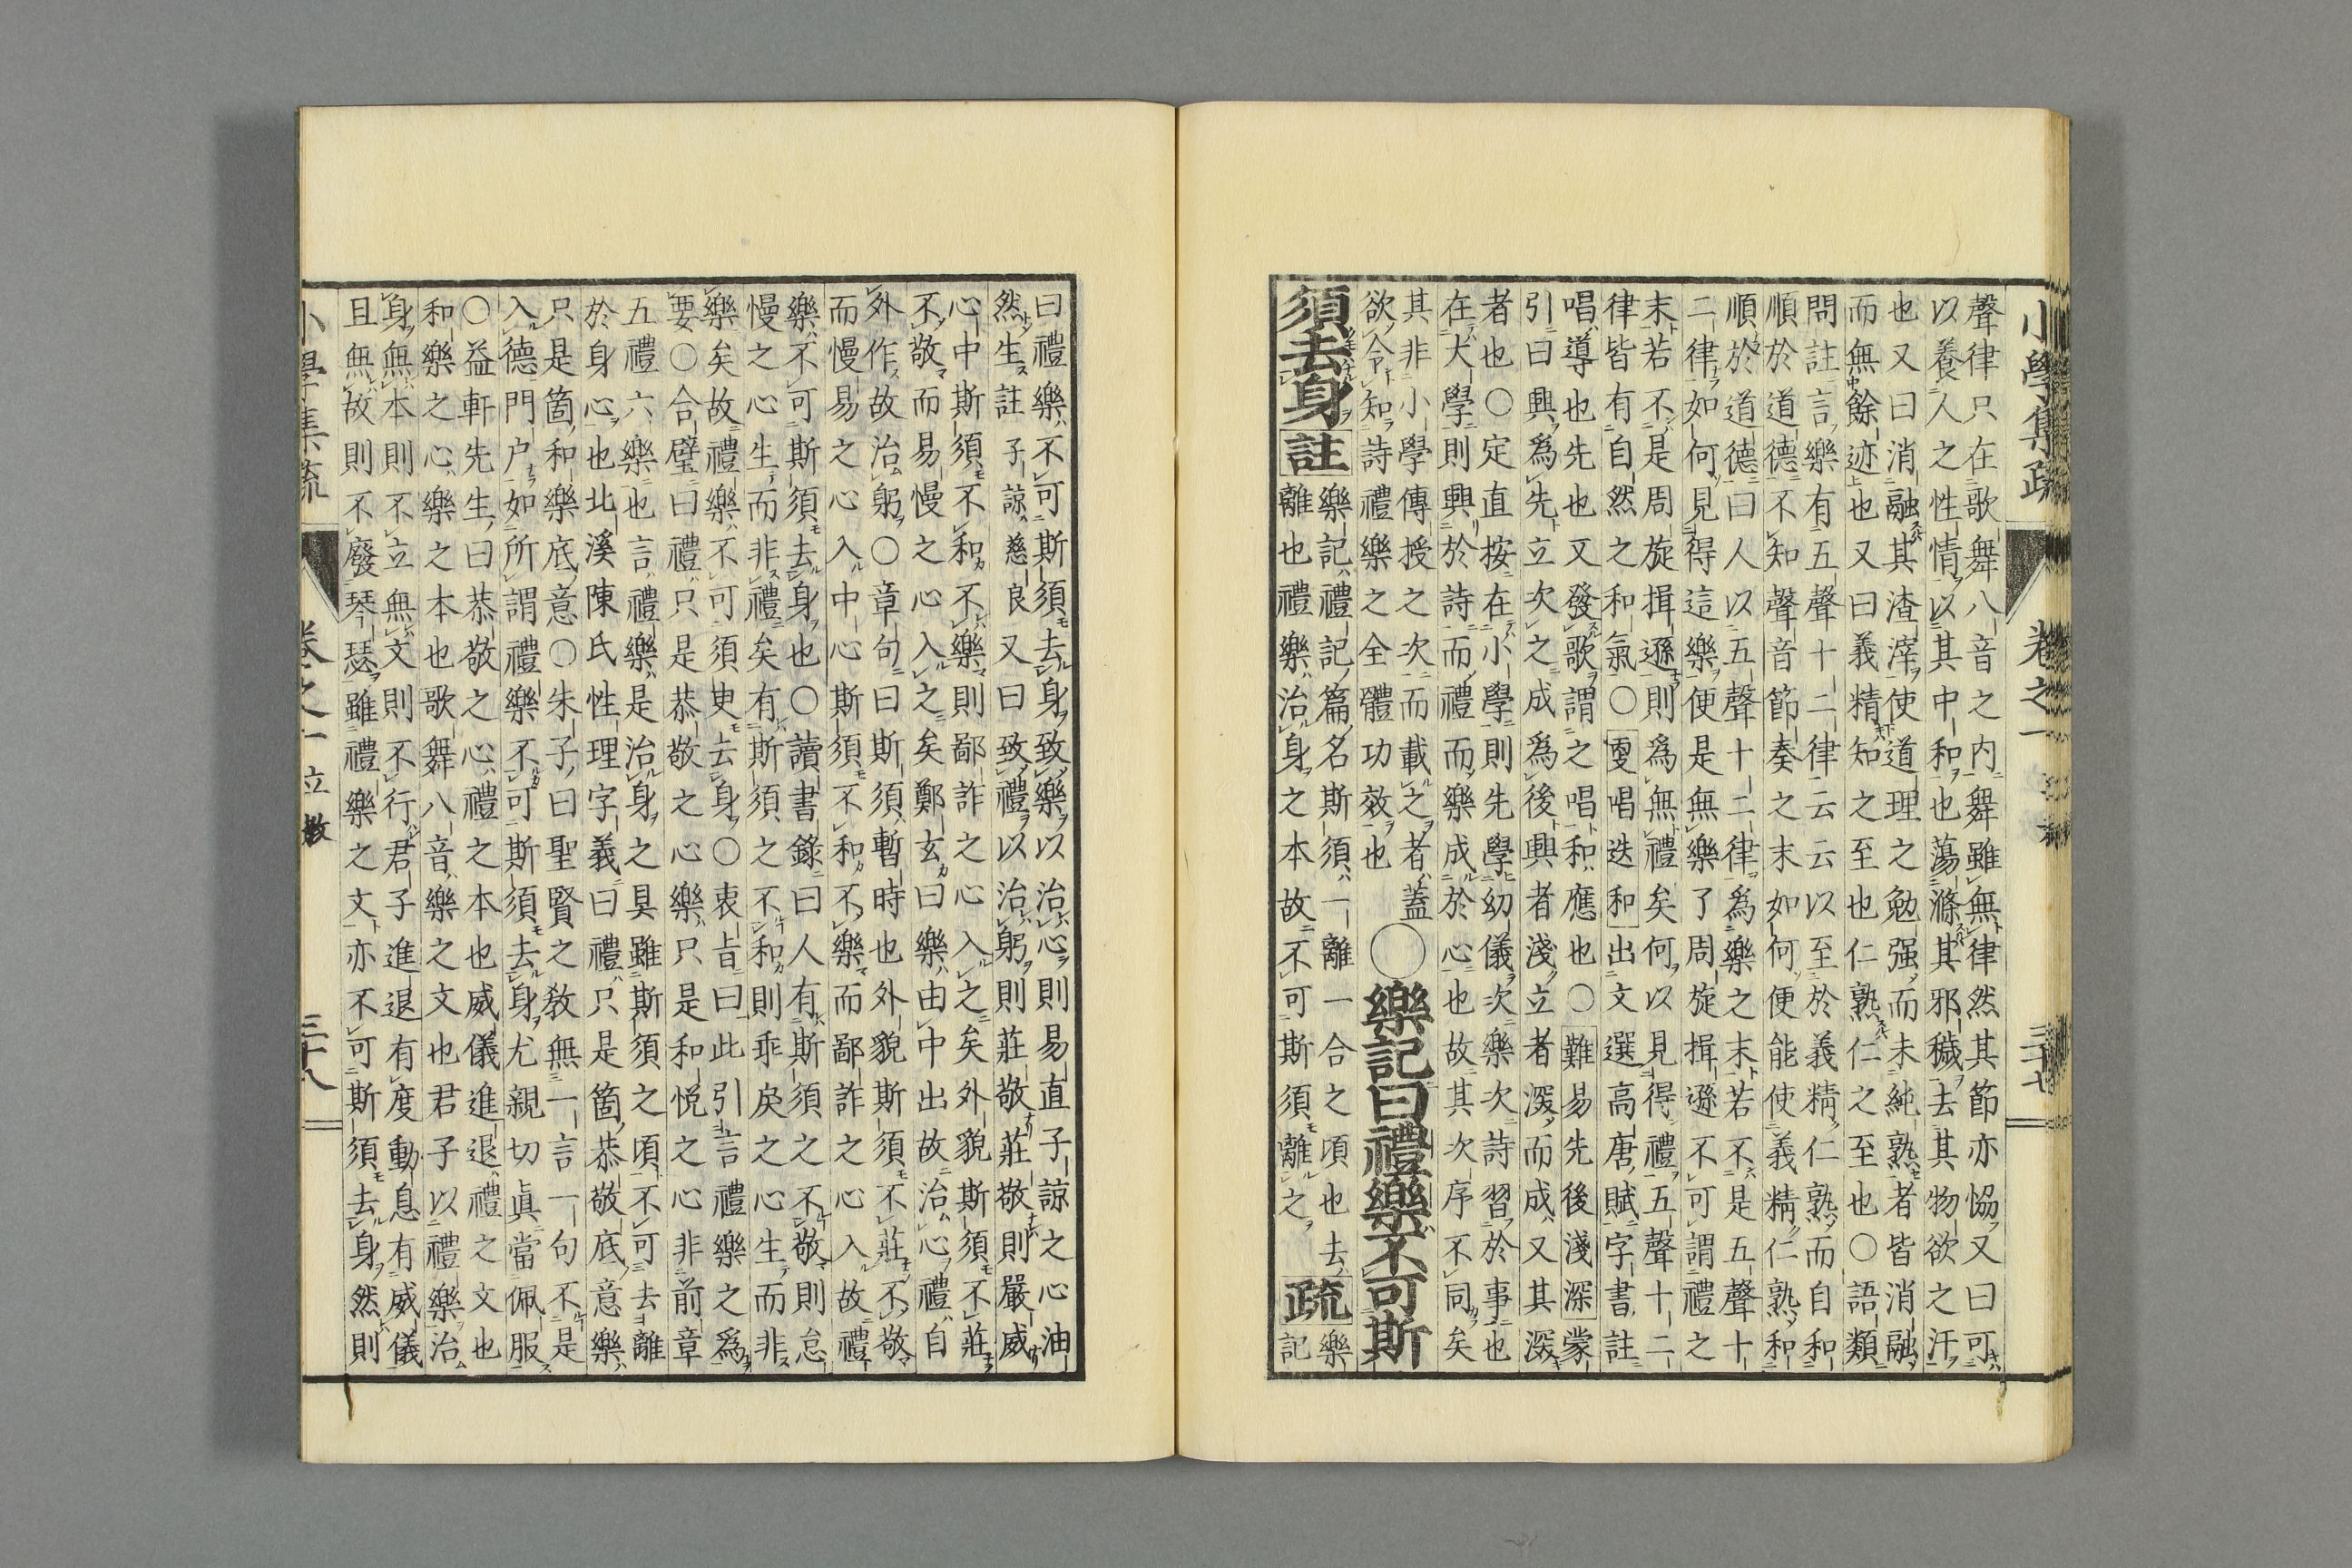 小學集疏 卷之一 三十七
聲律只在歌舞八音之内舞雖無律然其節亦恊又曰可
以養人之性情以其中和也蕩滌其邪穢去其物欲之汙
也又曰消融其渣滓使道理之勉强而未純熟者皆消融
而無餘迹也又曰義精知之至也仁熟仁之至也〇語類
問註言樂有五聲十二律云云以至於義精仁熟而自和
順於道德不知聲音節奏之末如何便能使義精仁熟和
順於道德曰人以五聲十二律爲樂之末若不是五聲十
二律如何見得這樂便是無樂了周旋揖遜不可謂禮之
末若不是周旋揖遜則爲無禮矣何以見得禮五聲十二
律皆有自然之和氣〇更唱迭和出文選高唐賦字書註
唱導也先也又發歌謂之唱和應也〇難易先後淺深蒙
引曰興爲先立次之成爲後興者淺立者深而成又其深
者也〇定直按在小學則先學幼儀次樂次詩習於事也
在大學則興於詩而禮而樂成於心也故其次序不同矣
其非小學傳授之次而載之者蓋
欲令知詩禮樂之全體功效也
〇樂記曰禮樂不可斯
須去身註
樂記禮記篇名斯須一離一合之頃也去
離也禮樂治身之本故不可斯須離之
疏
樂
記
曰禮樂不可斯須去身致樂以治心則易直子諒之心油
然生註子諒慈良又曰致禮以治躬則莊敬莊敬則嚴威
心中斯須不和不樂則鄙詐之心入之矣外貌斯須不莊
不敬而易慢之心入之矣鄭玄曰樂由中出故治心禮自
外作故治躬〇章句曰斯須暫時也外貌斯須不莊不敬
而慢易之心入中心斯須不和不樂而鄙詐之心入故禮
樂不可斯須去身也〇讀書錄曰人有斯須之不敬則怠
慢之心生而非禮矣有斯須之不和則乖戾之心生而非
樂矣故禮樂不可須臾去身〇衷旨曰此引言禮樂之爲
要〇合璧曰禮只是恭敬之心樂只是和悅之心非前章
五禮六樂也言禮樂是治身之具雖斯須之頃不可去離
於身心也北溪陳氏性理字義曰禮只是箇恭敬底意樂
只是箇和樂底意〇朱子曰聖賢之敎無一言一句不是
入德門户如所謂禮樂不可斯須去身尤親切眞當佩服
〇益軒先生曰恭敬之心禮之本也威儀進退禮之文也
和樂之心樂之本也歌舞八音樂之文也君子以禮樂治
身無本則不立無文則不行君子進退有度動息有威儀
且無故則不廢琴瑟雖禮樂之文亦不可斯須去身然則
小學集疏 卷之一 立教 三十八